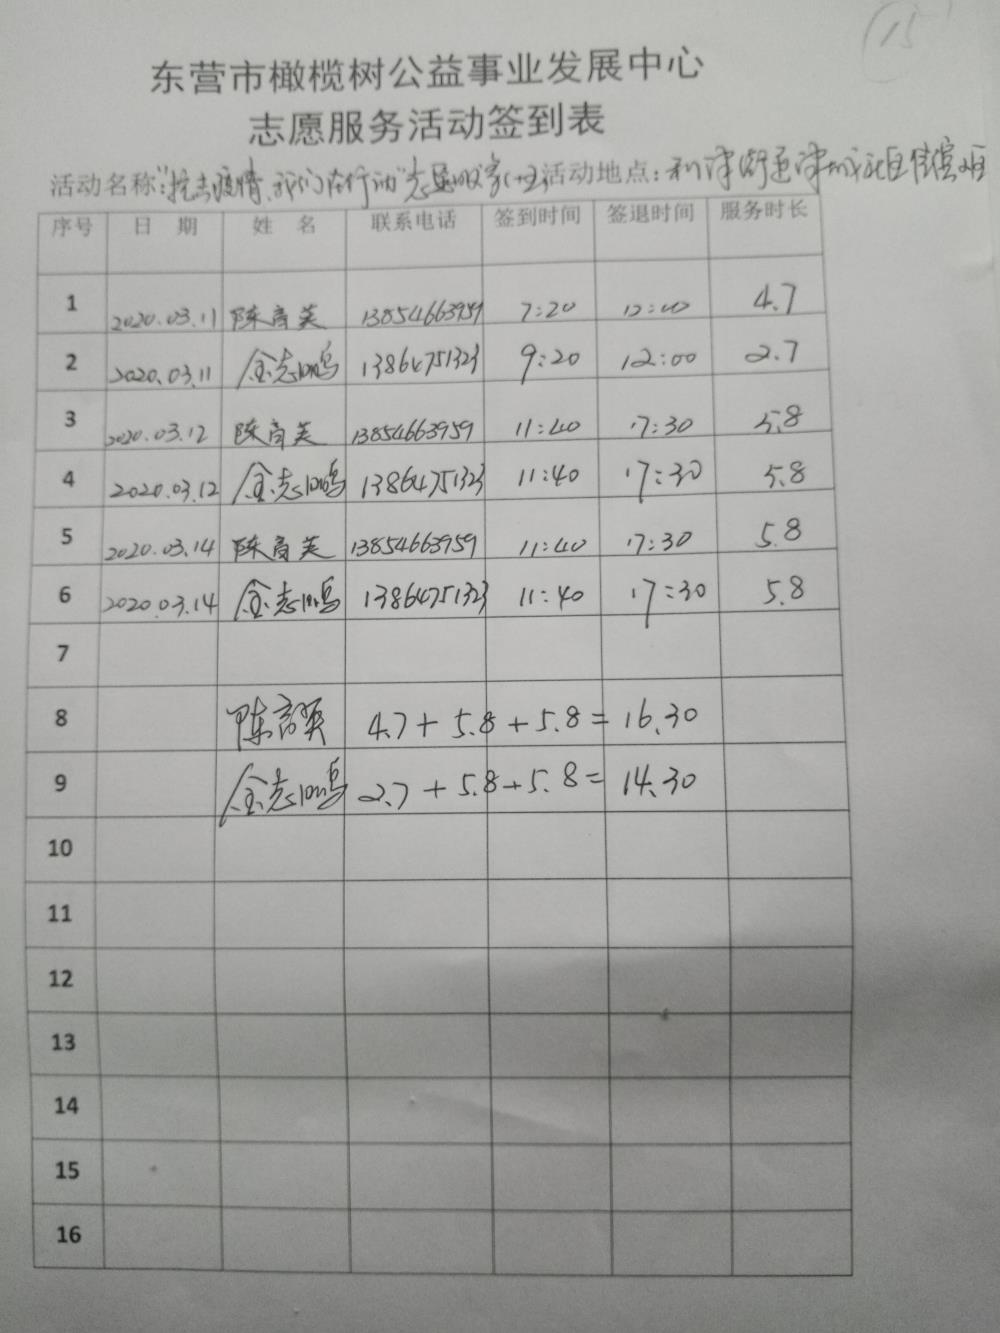 15
东营市橄榄树公益事业发展中心
志愿服务活动签到表
活动名称:"抗击疫情、我们在行动"志愿服务 活动地点:利津街道津城社区
序号 日 期 姓 名 联系电话 签到时间 签退时间 服务时长
1 2020.03.11 陈 英 13854663959 7:20 12:00 4.7
2 2020.03.11 金志鹏 13864751323 9:20 12:00 2.7
3 2020.03.12 陈 英 13854663959 11:40 17:30 5.8
4 2020.03.12 金志鹏 13864751323 11:40 17:30 5.8
5 2020.03.14 陈 英 13854663959 11:40 17:30 5.8
6 2020.03.14 金志鹏 13864751323 11:40 17:30 5.8
7
8 陈 英 4.7+5.8+5.8= 16.30
9 金志鹏 2.7+5.8+5.8= 14.30
10
11
12
13
14
15
16